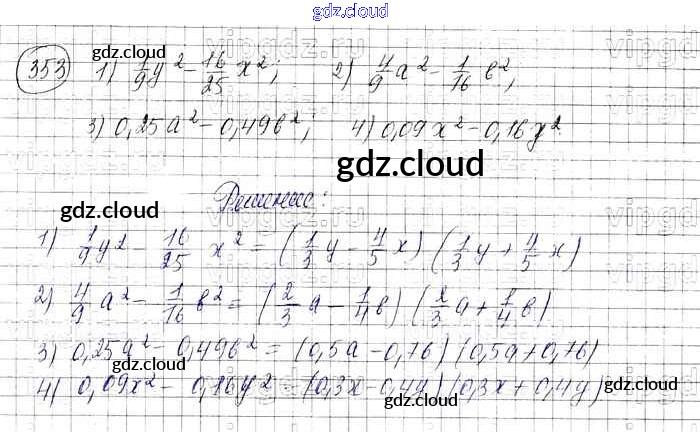 gdz.cloud
353 1) 1/9 y² - 16/25 x²; 2) 4/9 a² - 1/16 b²;
gdz.cloud
3) 0,25a² - 0,49b²; 4) 0,09x² - 0,16y²
gdz.cloud
gdz.cloud
Решение:
1) 1/9 y² - 16/25 x² = (1/3 y - 4/5 x) (1/3 y + 4/5 x)
2) 4/9 a² - 1/16 b² = (2/3 a - 1/4 b) (2/3 a + 1/4 b)
3) 0,25a² - 0,49b² = (0,5a - 0,7b) (0,5a + 0,7b)
4) 0,09x² - 0,16y² = (0,3x - 0,4y) (0,3x + 0,4y)
gdz.cloud